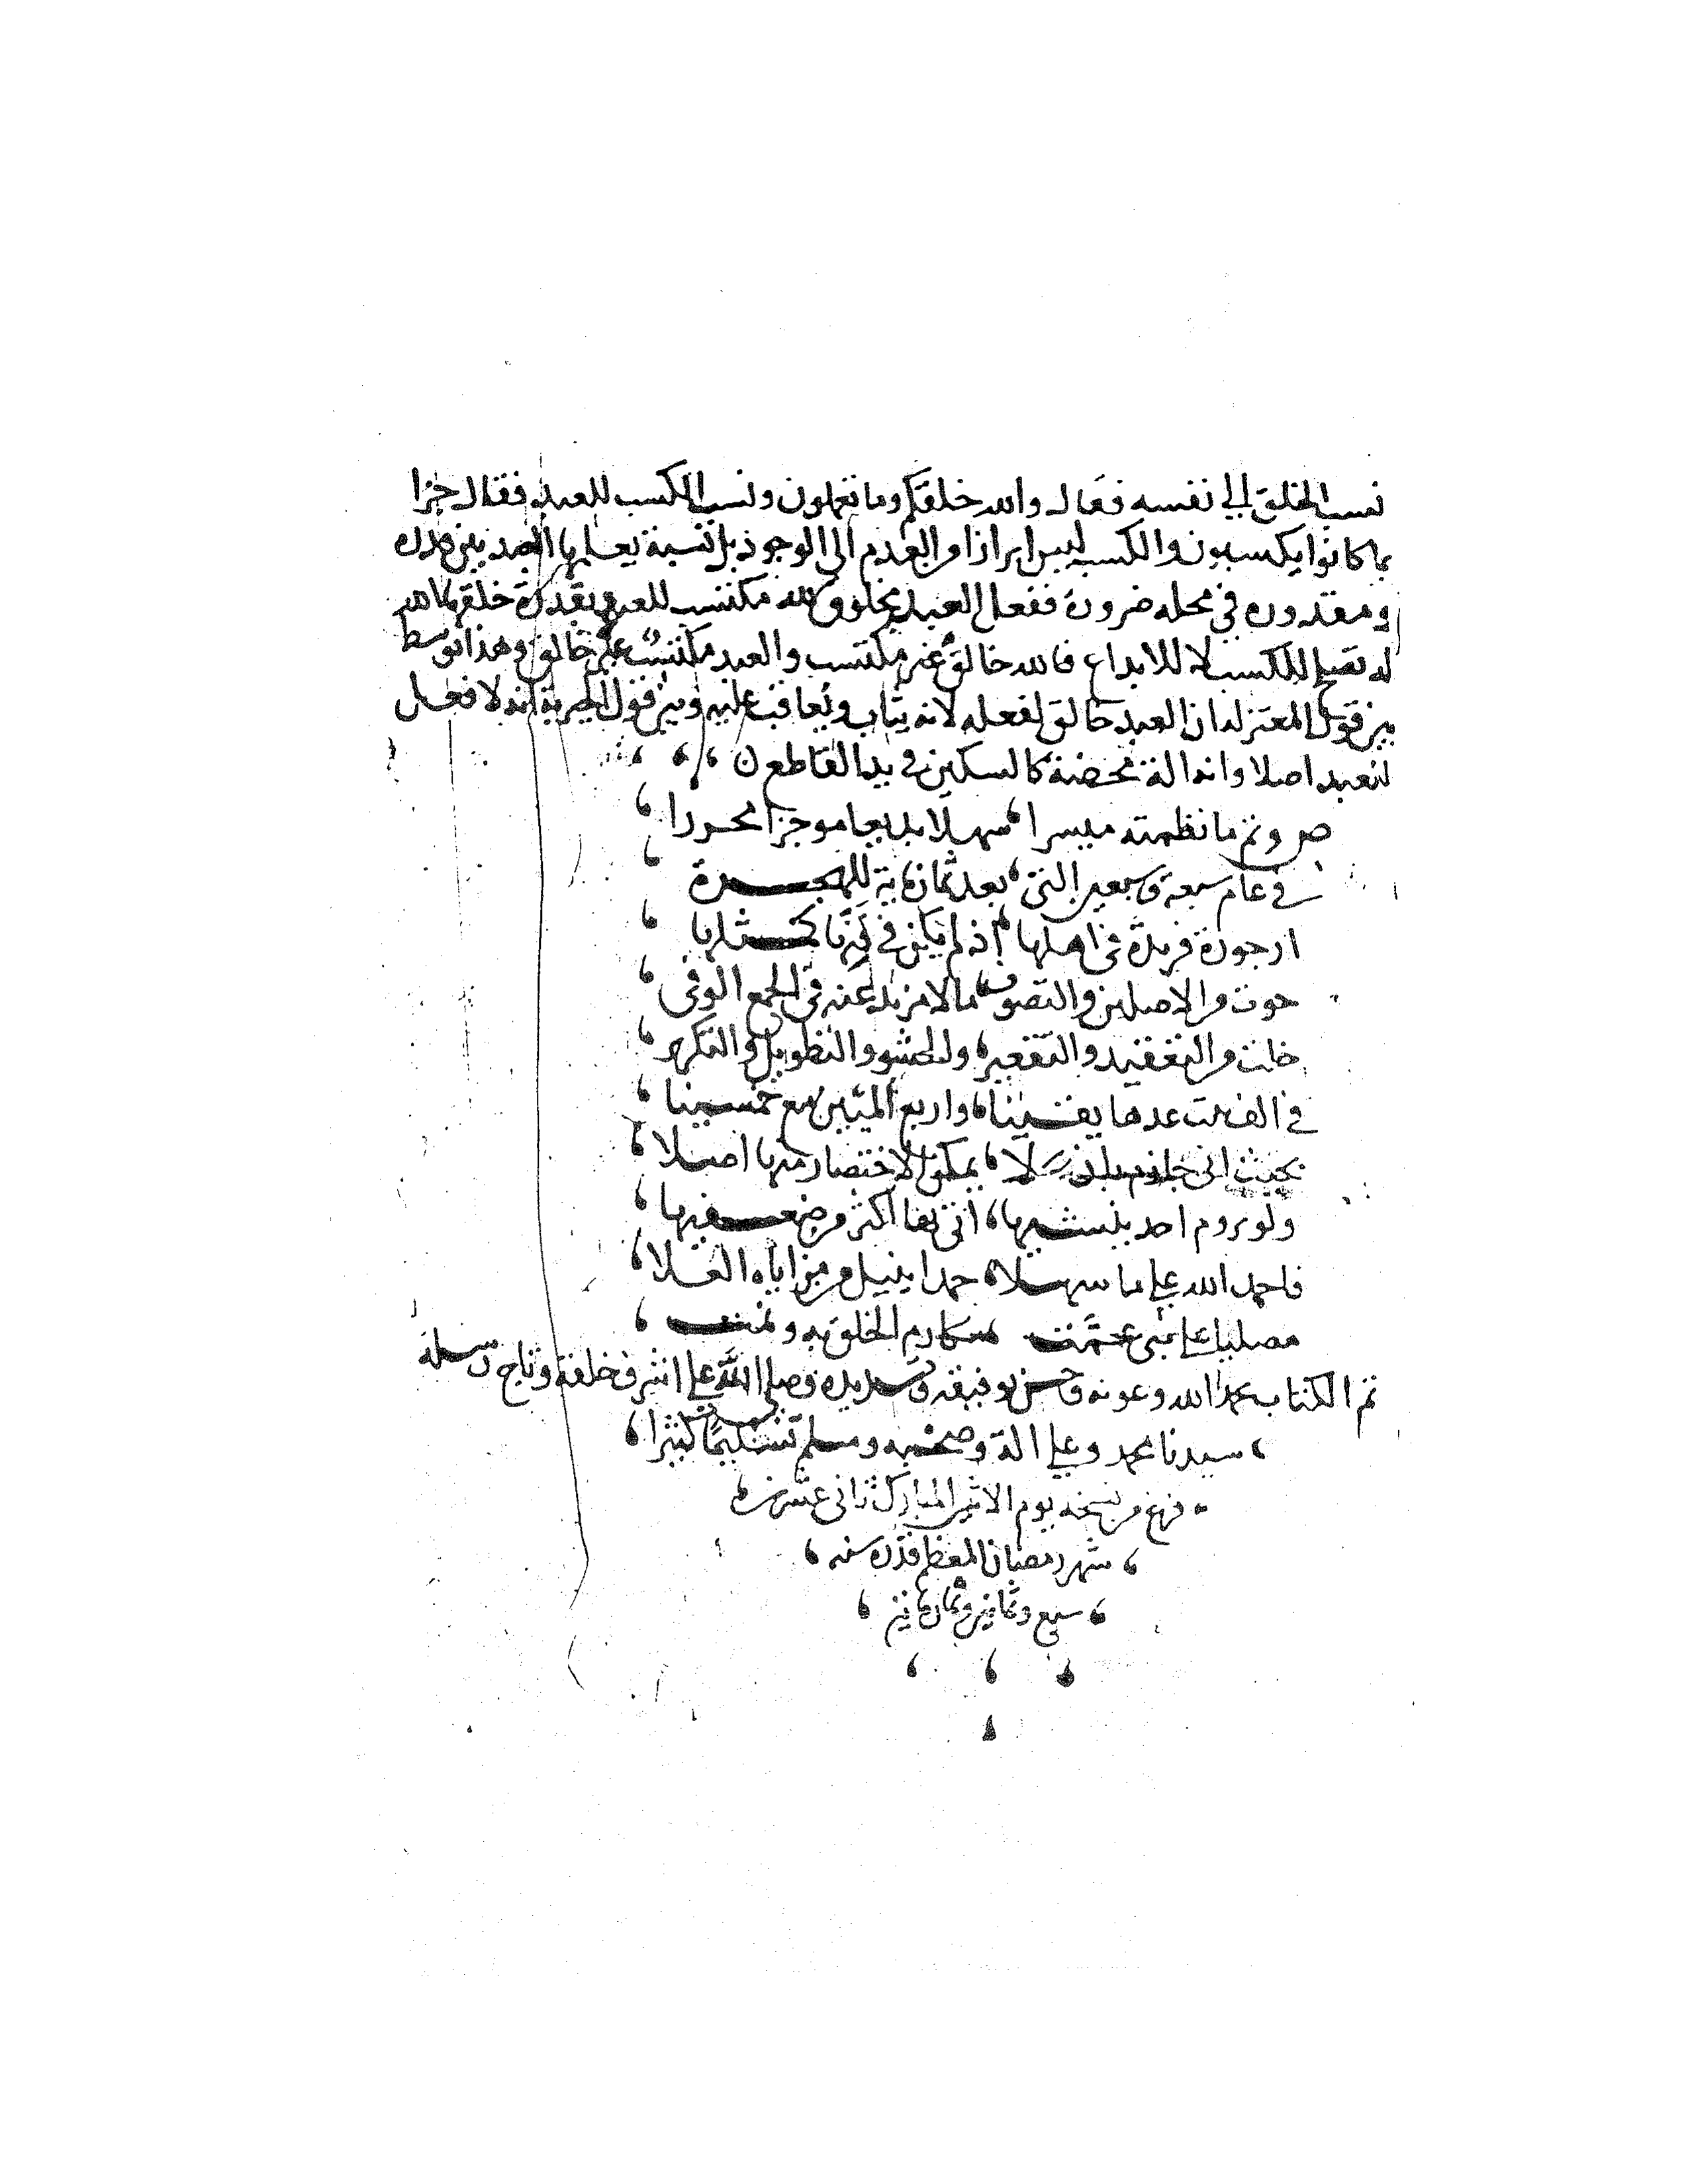 نسب الخلق الى نفسه فقال والله خلقكم وما تعملون ونسب الكسب للعبد فقال جزا
بما كانوا يكسبون والكسب ليس ابرازا من العدم الى الوجود بل نسبة يعلمها العبد بين قدرته
ومقدوره في محله ضرورة ففعل العبد مخلوق لله مكتسب للعبد بقدرة خلقها الله
له تصلح للكسب لا للابداع فالله خالق غير مكتسب والعبد مكتسب غير خالق وهذا توسط
بين قول المعتزلة ان العبد خالق لفعله لانه يثاب ويعاقب عليه وبين قول الجبرية انه لا فعل
للعبد اصلا وانه الة محضة كالسكين في يد القاطع ن
ص وتم ما نظمته ميسرا ، سهلا بديعا موجزا محررا ،
في عام سبعة وسبعين التي ، بعد ثمانماية للهجرة ،
ارجوزة فريدة في اهلها ، اذ لم يكن في فنها كمثلها ،
حوت من الاصلين والتصوف ، ما لا مزيد عنه في الجمع الوفي ،
خلت من التعقيد والتقعير ، والحشو والتطويل والتكرير ،
في الف بيت عدها يقينا ، واربع الميين مع خمسينا ،
بحيث اني جازم بان لا ، يمكن الاختصار منها اصلا ،
ولو يروم احد ينشيها ، اتى بها اكثر من ضعفيها ،
فاحمد الله على ما سهلا ، حمدا ينيل من مزاياه العلا ،
مصليا على نبي عمت مكارم الخلق به وتمت ،
تم الكتاب بحمد الله وعونه وحسن توفيقه وتسديده وصلى الله على اشرف خلقه وتاج رسله
، سيدنا محمد وعلى اله وصحبه وسلم تسليما كثيرا ،
فرغ من نسخه يوم الاثنين المبارك ثاني عشرين
، شهر رمضان المعظم قدره سنه ،
، سبع وثمانين وثمانماية ،